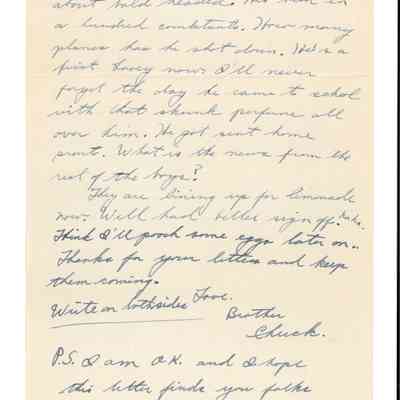 about bald headed. His been in
a hundred combatants. How many
planes has he shot down. He's a
first Looey now. I'll never
forget the day he came to school
with that skunk perfume all
over him. He got sent home
pronto. What is the news from the
rest of the boys?
They are lining up for lemonade
now. Well had better sign off. Haha.
Think I'll poach some eggs later on.
Thanks for your letters and keep
them coming.
Write on bothsides Love.
Brother
Chuck.
P.S. I am O.K. and I hope
this letter finds you folks